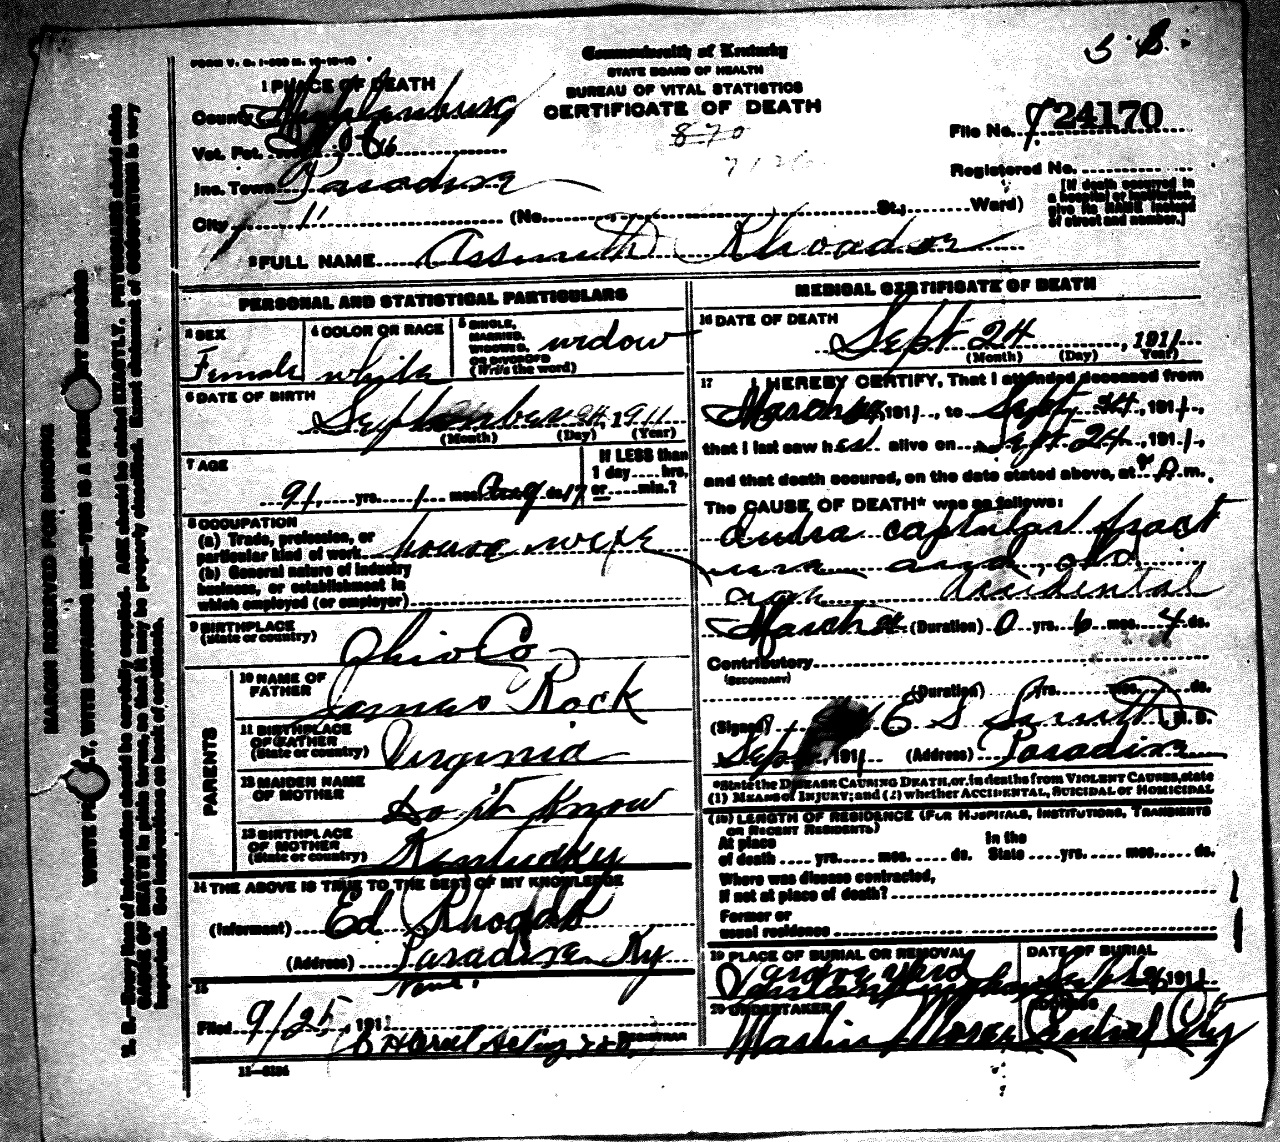 FORM V. S. 1-
Commonwealth of Kentucky
STATE BOARD OF HEALTH
BUREAU OF VITAL STATISTICS
CERTIFICATE OF DEATH
1 PLACE OF DEATH
County Muhlenburg
Vot. Pct.
Inc. Town Paradise
City " (No. St.; Ward)
870
File No. 24170
Registered No.
[If death occurred in
a hospital or institution,
give its NAME instead
of street and number.]
2 FULL NAME Rhoades
PERSONAL AND STATISTICAL PARTICULARS
3 SEX
Female
4 COLOR OR RACE
white
5 SINGLE,
MARRIED,
WIDOWED,
OR DIVORCED
(Write the word)
widow
6 DATE OF BIRTH
September 24, 1911
(Month) (Day) (Year)
7 AGE
91 yrs. 1 mos. ds.
If LESS than
1 day hrs.
or min.?
8 OCCUPATION
(a) Trade, profession, or
particular kind of work house wife
(b) General nature of industry
business, or establishment in
which employed (or employer)
9 BIRTHPLACE
(State or country)
Ohio Co
PARENTS
10 NAME OF
FATHER
James Rock
11 BIRTHPLACE
OF FATHER
(State or country)
Virginia
12 MAIDEN NAME
OF MOTHER
Do it Know
13 BIRTHPLACE
OF MOTHER
(State or country)
Kentucky
14 THE ABOVE IS TRUE TO THE BEST OF MY KNOWLEDGE
(Informant) Ed Rhoads
(Address) Paradise Ky
15
Filed 9/25, 191
REGISTRAR
11-
MEDICAL CERTIFICATE OF DEATH
16 DATE OF DEATH
Sept 24, 1911
(Month) (Day) Year)
17 I HEREBY CERTIFY, That I attended deceased from
March 1911, to Sept 24, 1911,
that I last saw her alive on Sept 24, 1911,
and that death occured, on the date stated above, at m.
The CAUSE OF DEATH* was as follows:
fract
ure and old
age accidental
March (Duration) 0 yrs. 6 mos. 4 ds.
Contributory
(SECONDARY)
(Duration) yrs. mos. ds.
(Signed) E S M. D.
Sept 1911 (Address) Paradise
*State the DISEASE CAUSING DEATH, or, in deaths from VIOLENT CAUSES, state
(1) MEANS of INJURY; and (2) whether ACCIDENTAL, SUICIDAL or HOMICIDAL
(18) LENGTH OF RESIDENCE (FOR HOSPITALS, INSTITUTIONS, TRANSIENTS
OR RECENT RESIDENTS)
At place
of death yrs. mos. ds.
In the
State yrs. mos. ds.
Where was disease contracted,
if not at place of death?
Former or
usual residence
19 PLACE OF BURIAL OR REMOVAL
DATE OF BURIAL
Sept 1911
20 UNDERTAKER
Martin Moore
ADDRESS
Central City
MARGIN RESERVED FOR BINDING
WRITE PLAINLY, WITH UNFADING INK—THIS IS A PERMANENT RECORD
N. B.—Every item of information should be carefully supplied. AGE should be stated EXACTLY. PHYSICIANS should state
CAUSE OF DEATH in plain terms, so that it may be properly classified. Exact statement of OCCUPATION is very
important. See instructions on back of certificate.